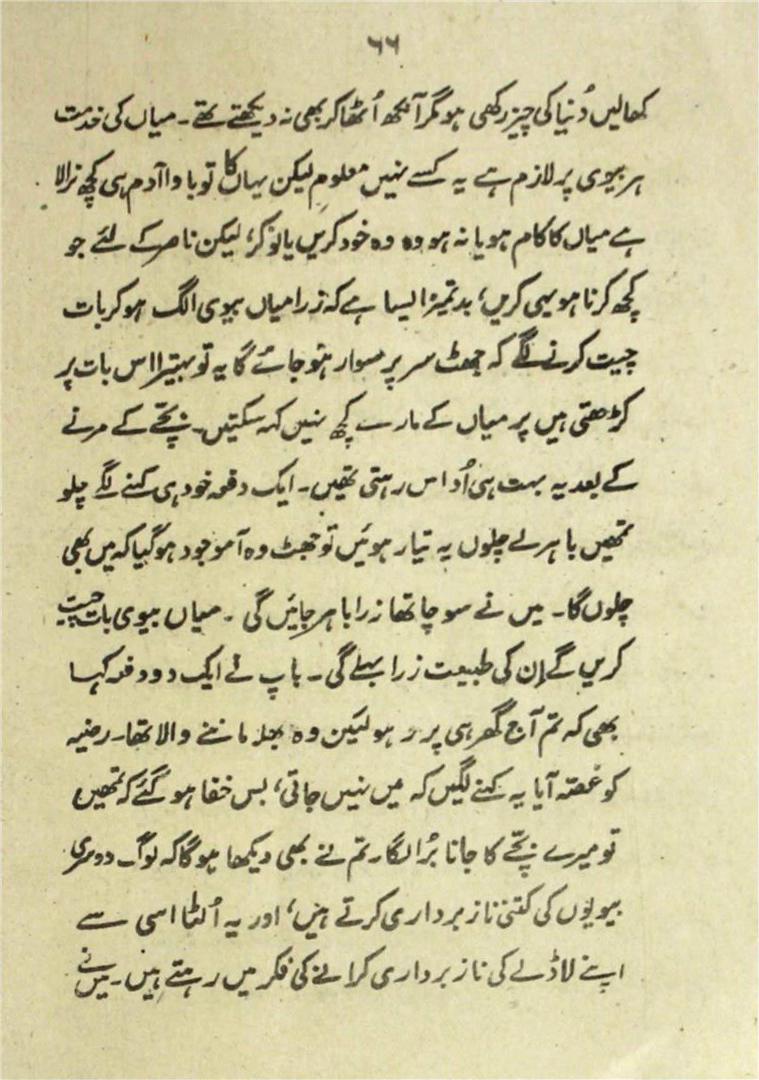 ۶۶
کھالیں دُنیا کی چیز رکھی ہو مگر آنکھ اُٹھا کر بھی نہ دیکھتے تھے۔ میاں کی خدمت
ہر بیوی پر لازم ہے یہ کسے نہیں معلوم لیکن یہاں کا تو باوا آدم ہی کچھ نرالا
ہے میاں کا کام ہو یا نہ ہو وہ وہ خود کریں یا نوکر، لیکن ناصر کے لئے جو
کچھ کرنا ہو یہی کریں، بدتمیز ایسا ہے کہ زرا میاں بیوی الگ ہو کر بات
چیت کرنے لگے کہ جھٹ سر پر سوار ہو جائے گا یہ تو بہتیرا اس بات پر
کڑھتی ہیں پر میاں کے مارے کچھ نہیں کہہ سکتیں۔ بچّے کے مرنے
کے بعد یہ بہت ہی اُداس رہتی تھیں۔ ایک دفعہ خود ہی کہنے لگے چلو
تمھیں باہر لے چلوں یہ تیار ہوئیں تو جھٹ وہ آموجود ہوگیا کہ میں بھی
چلوں گا۔ میں نے سوچا تھا زرا باہر جائیں گی۔ میاں بیوی بات چیت
کریں گے اِن کی طبیعت زرا بہلے گی۔ باپ نے ایک دو دفعہ کہا
بھی کہ تم آج گھر ہی پر رہو لیکن وہ بھلا ماننے والا تھا۔ رضیہ
کو غصّہ آیا یہ کہنے لگیں کہ میں نہیں جاتی، بس خفا ہو گئے کہ تمھیں
تو میرے بچّے کا جانا بُرا لگا۔ تم نے بھی دیکھا ہوگا کہ لوگ دوسری
بیویوں کی کتنی ناز برداری کرتے ہیں، اور یہ اُلٹا اسی سے
اپنے لاڈلے کی ناز برداری کرانے کی فکر میں رہتے ہیں۔ میں نے